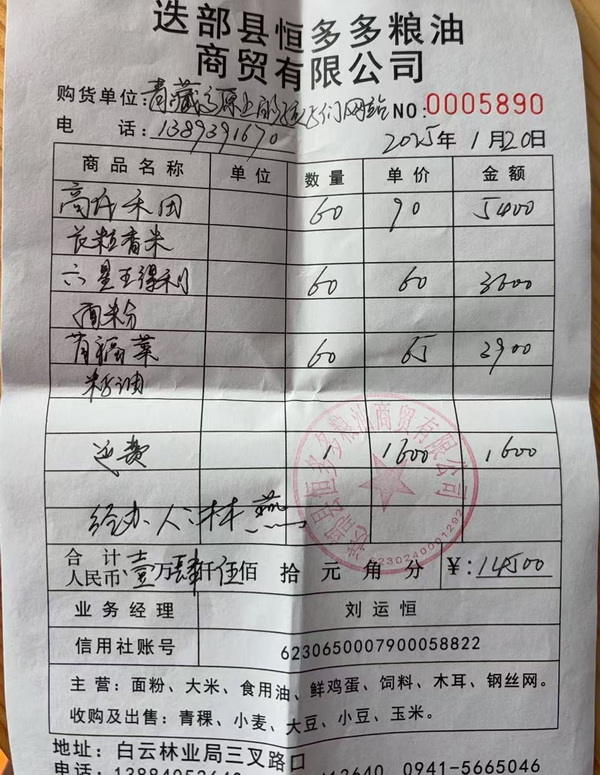 迭部县恒多多粮油
商贸有限公司
购货单位: 青藏高原上的孩子们网站 NO:0005890
电 话: 13893991670 2025年 1月20日
商品名称 单位 数量 单价 金额
禾田 60 90 5400
长粒香米
六星王得利 60 60 3600
面粉
有福菜 60 65 3900
籽油
运费 1 1600 1600
经办人:林燕
合计 人民币: 壹万肆仟伍佰 拾 元 角 分 ¥: 14500
业务经理 刘运恒
信用社账号 6230650007900058822
主营:面粉、大米、食用油、鲜鸡蛋、饲料、木耳、钢丝网。
收购及出售:青稞、小麦、大豆、小豆、玉米。
地址:白云林业局三叉路口
0941-5665046
迭部县恒多多粮油商贸有限公司
6230240001292